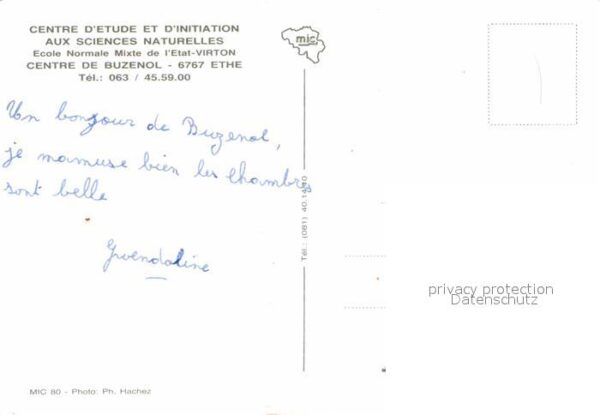 CENTRE D'ETUDE ET D'INITIATION
AUX SCIENCES NATURELLES
Ecole Normale Mixte de l'Etat-VIRTON
CENTRE DE BUZENOL - 6767 ETHE
Tél.: 063 / 45.59.00
mic
Un bonjour de Buzenol,
je mamuse bien les chambres
sont belle
Gwendoline
Tél.: (081) 40.14.10
privacy protection
Datenschutz
MIC 80 - Photo: Ph. Hachez